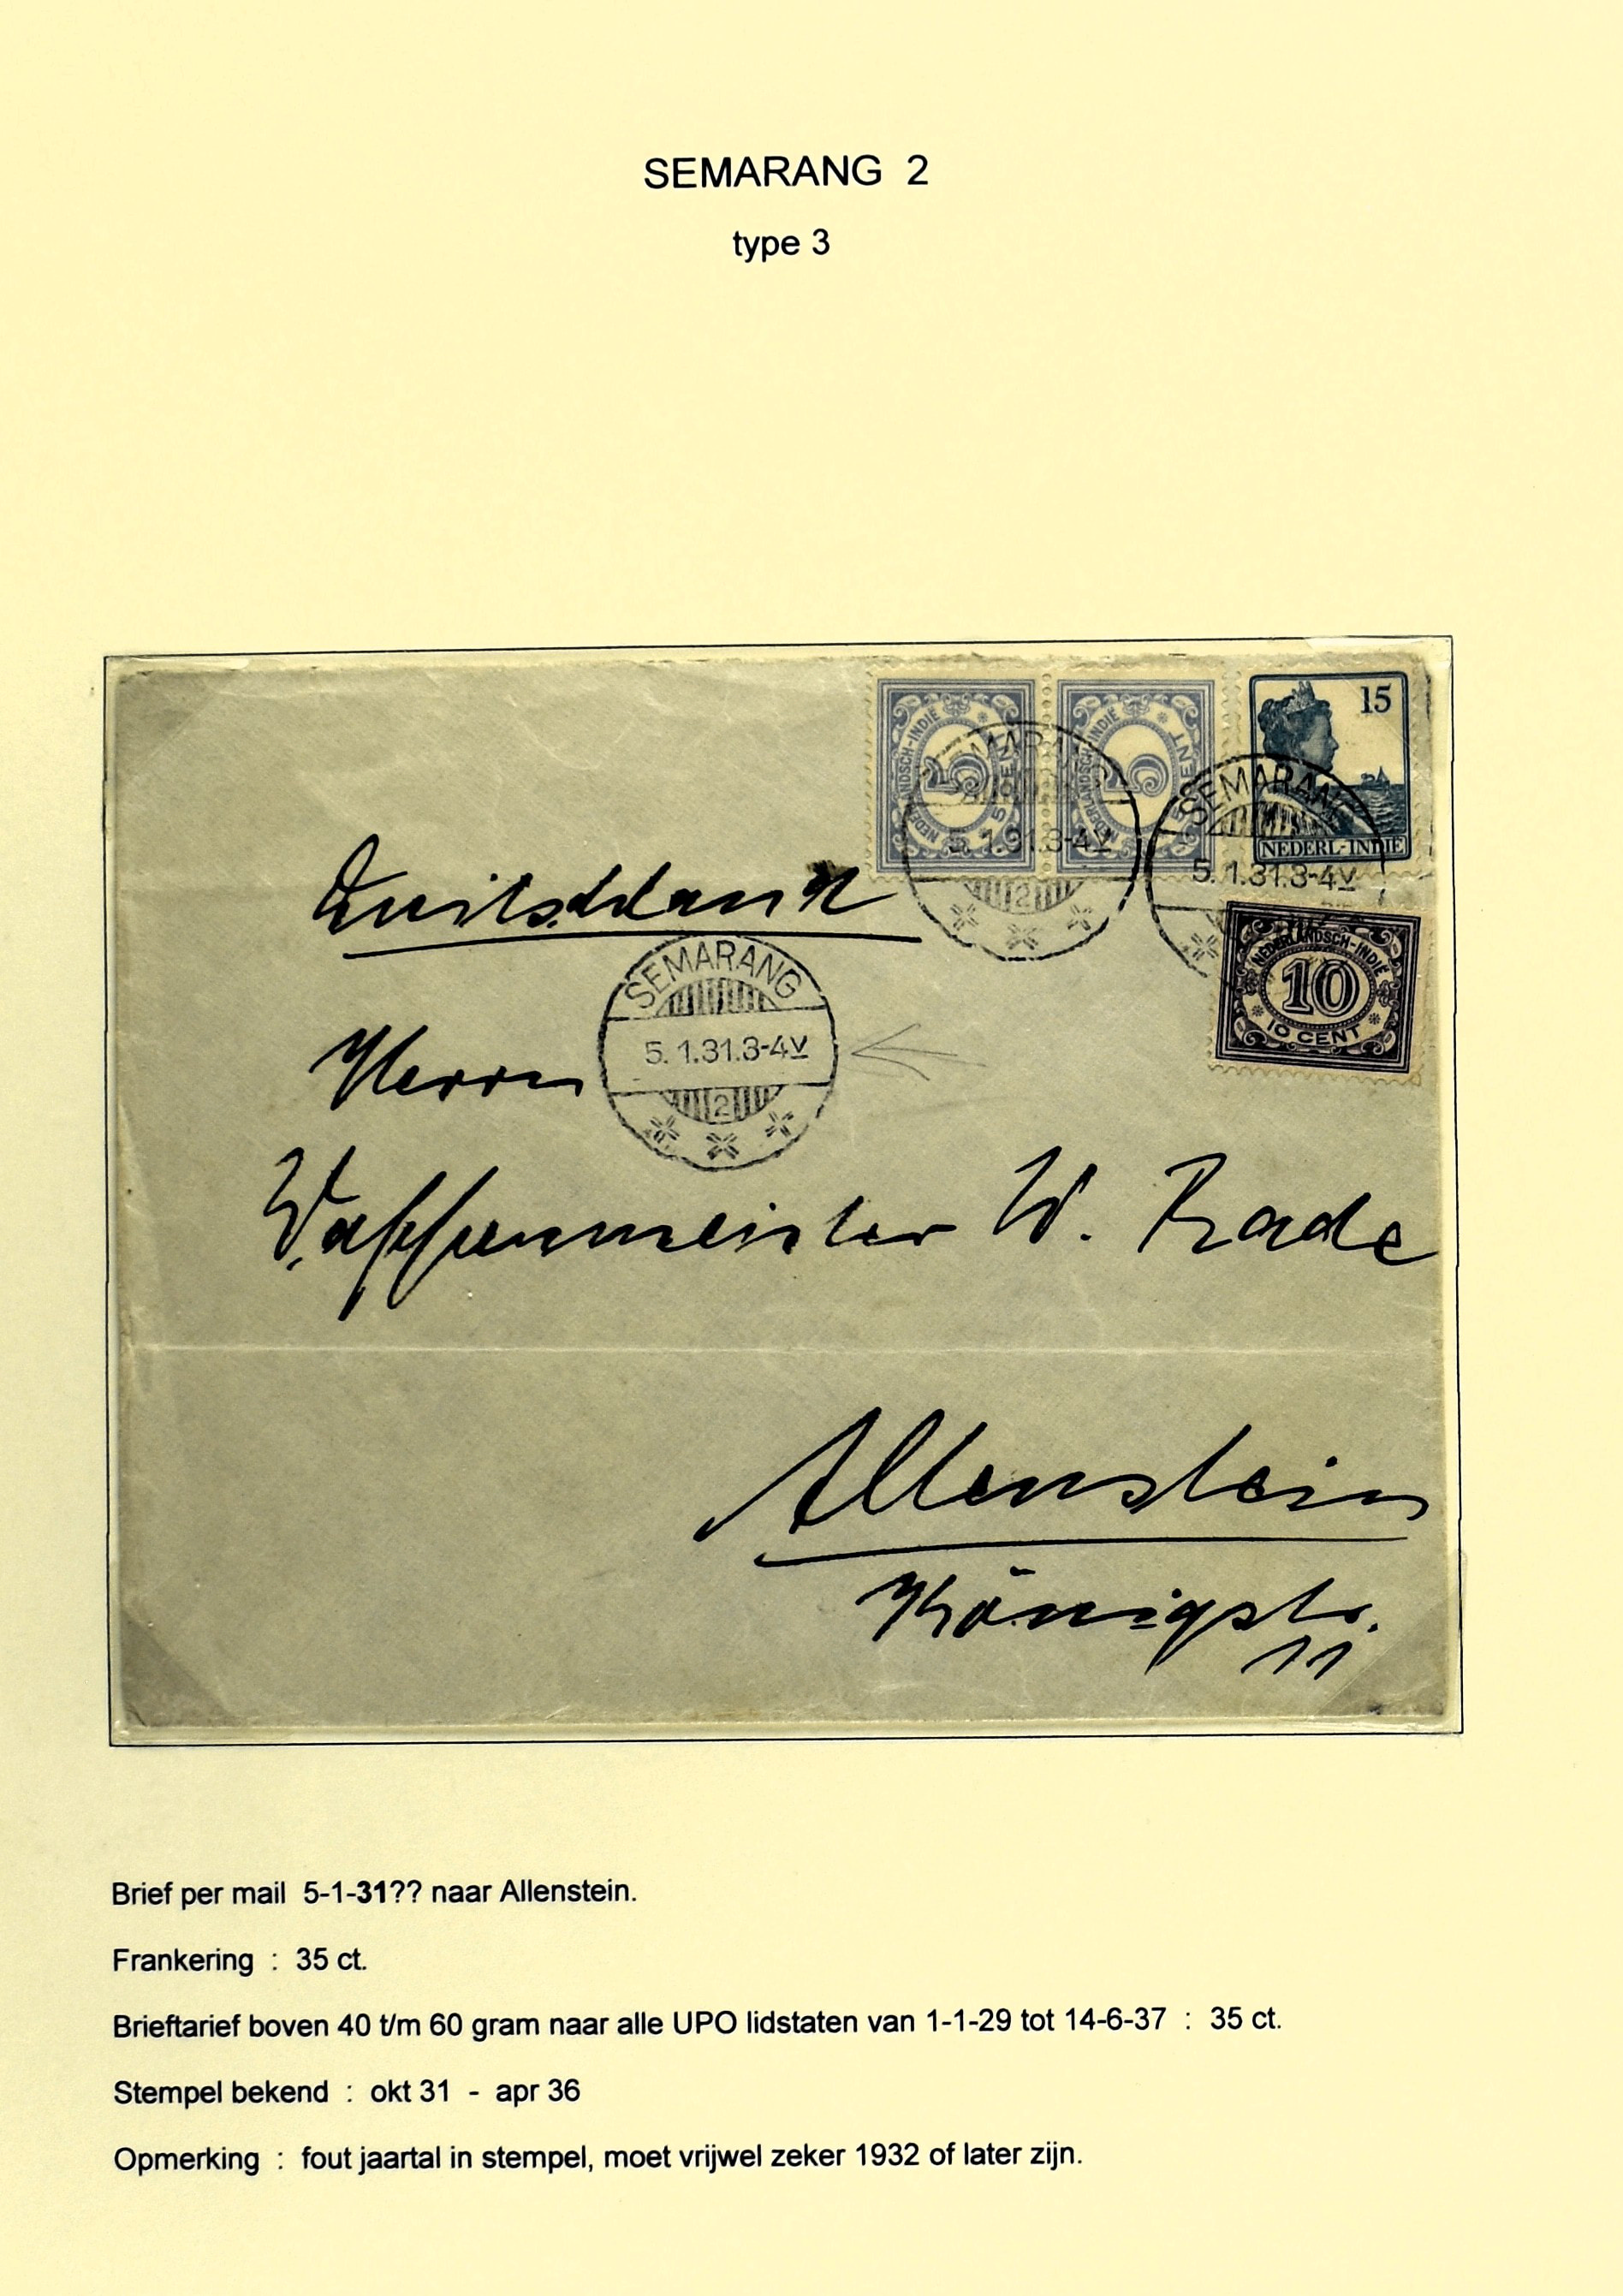 SEMARANG 2
type 3
NEDERLANDSCH-INDIË
5
5 CENT
NEDERLANDSCH-INDIË
5
5 CENT
15
NEDERL-INDIË
SEMARANG
5.1.31.3-4V
2
SEMARANG
5.1.31.3-4V
NEDERLANDSCH-INDIË
10
10 CENT
Deutschland
SEMARANG
5.1.31.3-4V
2
Herrn
Waffenmeister W. Rade
Allenstein
Königstr.
11
Brief per mail 5-1-31?? naar Allenstein.
Frankering : 35 ct.
Brieftarief boven 40 t/m 60 gram naar alle UPO lidstaten van 1-1-29 tot 14-6-37 : 35 ct.
Stempel bekend : okt 31 - apr 36
Opmerking : fout jaartal in stempel, moet vrijwel zeker 1932 of later zijn.